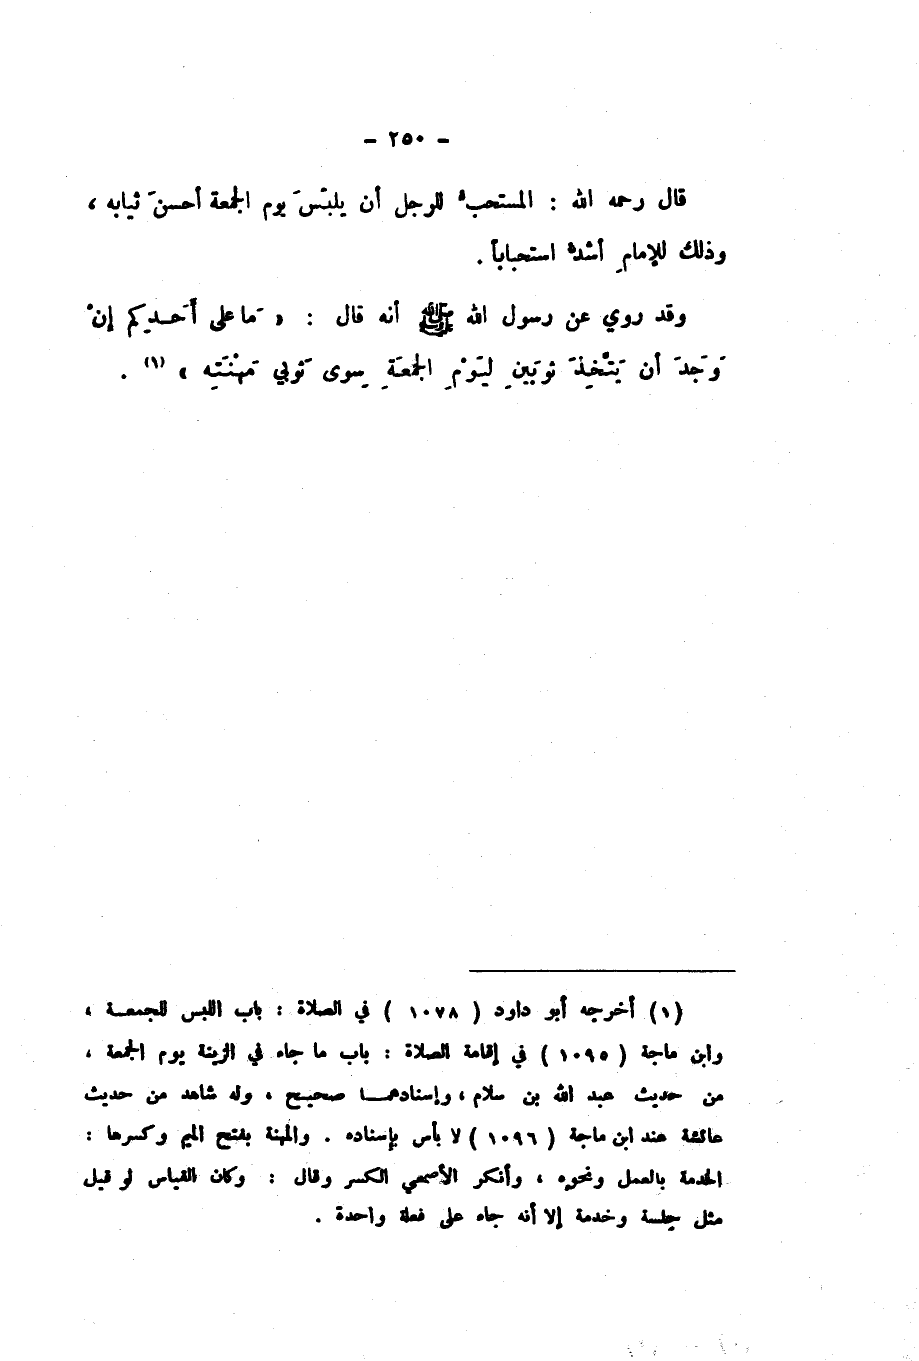 - ٢٥٠ -
قال رحمه الله : المستحبُّ للرجل أن يلبَسَ يوم الجمعة أحسنَ ثيابه ،
وذلك للإمامِ أشدُّ استحباباً .
وقد روي عن رسول الله ﷺ أنه قال : « مَا على أَحَدِكم إنْ
وَجَدَ أن يَتَّخِذَ ثوبَينِ ليَوْمِ الجمعَةِ سِوى ثَوبي مَهْنَتِه » (١) .
(١) أخرجه أبو داود ( ١٠٧٨ ) في الصلاة : باب اللبس للجمعة ،
وابن ماجة ( ١٠٩٥ ) في إقامة الصلاة : باب ما جاء في الزينة يوم الجمعة ،
من حديث عبد الله بن سلام ، وإسنادهما صحيح ، وله شاهد من حديث
عائشة عند ابن ماجة ( ١٠٩٦ ) لا بأس بإسناده . والمهنة بفتح الميم وكسرها :
الخدمة بالعمل ونحوه ، وأنكر الأصمعي الكسر وقال : وكان القياس لو قيل
مثل جلسة وخدمة إلا أنه جاء على فعلة واحدة .